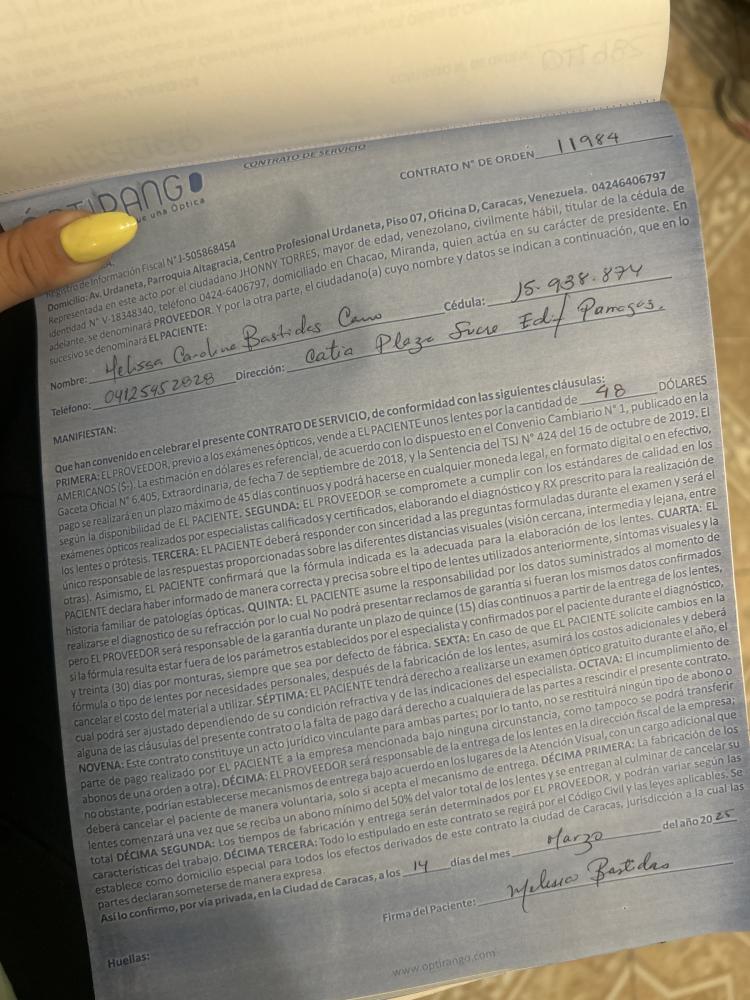 CONTRATO DE SERVICIO
CONTRATO N° DE ORDEN 11984
ue una Óptica
Registro de Información Fiscal N° J-505868454
Domicilio: Av. Urdaneta, Parroquia Altagracia, Centro Profesional Urdaneta, Piso 07, Oficina D, Caracas, Venezuela. 04246406797
Representada en este acto por el ciudadano JHONNY TORRES, mayor de edad, venezolano, civilmente hábil, titular de la cédula de
identidad N° V-18348340, teléfono 0424-6406797, domiciliado en Chacao, Miranda, quien actúa en su carácter de presidente. En
adelante, se denominará PROVEEDOR. Y por la otra parte, el ciudadano(a) cuyo nombre y datos se indican a continuación, que en lo
sucesivo se denominará EL PACIENTE:
Nombre: Melissa Carolina Bastidas Cano Cédula: 15.938.874
Teléfono: 04125452828 Dirección: Catia Plaza Sucre Edif
MANIFIESTAN:
Que han convenido en celebrar el presente CONTRATO DE SERVICIO, de conformidad con las siguientes cláusulas:
PRIMERA: EL PROVEEDOR, previo a los exámenes ópticos, vende a EL PACIENTE unos lentes por la cantidad de 48 DÓLARES
AMERICANOS ($-). La estimación en dólares es referencial, de acuerdo con lo dispuesto en el Convenio Cambiario N° 1, publicado en la
Gaceta Oficial N° 6.405, Extraordinaria, de fecha 7 de septiembre de 2018, y la Sentencia del TSJ N° 424 del 16 de octubre de 2019. El
pago se realizará en un plazo máximo de 45 días continuos y podrá hacerse en cualquier moneda legal, en formato digital o en efectivo,
según la disponibilidad de EL PACIENTE. SEGUNDA: EL PROVEEDOR se compromete a cumplir con los estándares de calidad en los
exámenes ópticos realizados por especialistas calificados y certificados, elaborando el diagnóstico y RX prescrito para la realización de
los lentes o prótesis. TERCERA: EL PACIENTE deberá responder con sinceridad a las preguntas formuladas durante el examen y será el
único responsable de las respuestas proporcionadas sobre las diferentes distancias visuales (visión cercana, intermedia y lejana, entre
otras). Asimismo, EL PACIENTE confirmará que la fórmula indicada es la adecuada para la elaboración de los lentes. CUARTA: EL
PACIENTE declara haber informado de manera correcta y precisa sobre el tipo de lentes utilizados anteriormente, síntomas visuales y la
historia familiar de patologías ópticas. QUINTA: EL PACIENTE asume la responsabilidad por los datos suministrados al momento de
realizarse el diagnostico de su refracción por lo cual No podrá presentar reclamos de garantía si fueran los mismos datos confirmados
pero EL PROVEEDOR será responsable de la garantía durante un plazo de quince (15) días continuos a partir de la entrega de los lentes,
si la fórmula resulta estar fuera de los parámetros establecidos por el especialista y confirmados por el paciente durante el diagnóstico,
y treinta (30) días por monturas, siempre que sea por defecto de fábrica. SEXTA: En caso de que EL PACIENTE solicite cambios en la
fórmula o tipo de lentes por necesidades personales, después de la fabricación de los lentes, asumirá los costos adicionales y deberá
cancelar el costo del material a utilizar. SÉPTIMA: EL PACIENTE tendrá derecho a realizarse un examen óptico gratuito durante el año, el
cual podrá ser ajustado dependiendo de su condición refractiva y de las indicaciones del especialista. OCTAVA: El incumplimiento de
alguna de las cláusulas del presente contrato o la falta de pago dará derecho a cualquiera de las partes a rescindir el presente contrato.
NOVENA: Este contrato constituye un acto jurídico vinculante para ambas partes; por lo tanto, no se restituirá ningún tipo de abono o
parte de pago realizado por EL PACIENTE a la empresa mencionada bajo ninguna circunstancia, como tampoco se podrá transferir
abonos de una orden a otra). DÉCIMA: EL PROVEEDOR será responsable de la entrega de los lentes en la dirección fiscal de la empresa;
no obstante, podrían establecerse mecanismos de entrega bajo acuerdo en los lugares de la Atención Visual, con un cargo adicional que
deberá cancelar el paciente de manera voluntaria, solo si acepta el mecanismo de entrega. DÉCIMA PRIMERA: La fabricación de los
lentes comenzará una vez que se reciba un abono mínimo del 50% del valor total de los lentes y se entregan al culminar de cancelar su
total DÉCIMA SEGUNDA: Los tiempos de fabricación y entrega serán determinados por EL PROVEEDOR, y podrán variar según las
características del trabajo. DÉCIMA TERCERA: Todo lo estipulado en este contrato se regirá por el Código Civil y las leyes aplicables. Se
establece como domicilio especial para todos los efectos derivados de este contrato la ciudad de Caracas, jurisdicción a la cual las
partes declaran someterse de manera expresa.
Así lo confirmo, por vía privada, en la Ciudad de Caracas, a los 14 días del mes Marzo del año 2025
Firma del Paciente: Melissa Bastidas
Huellas:
www.optirango.com